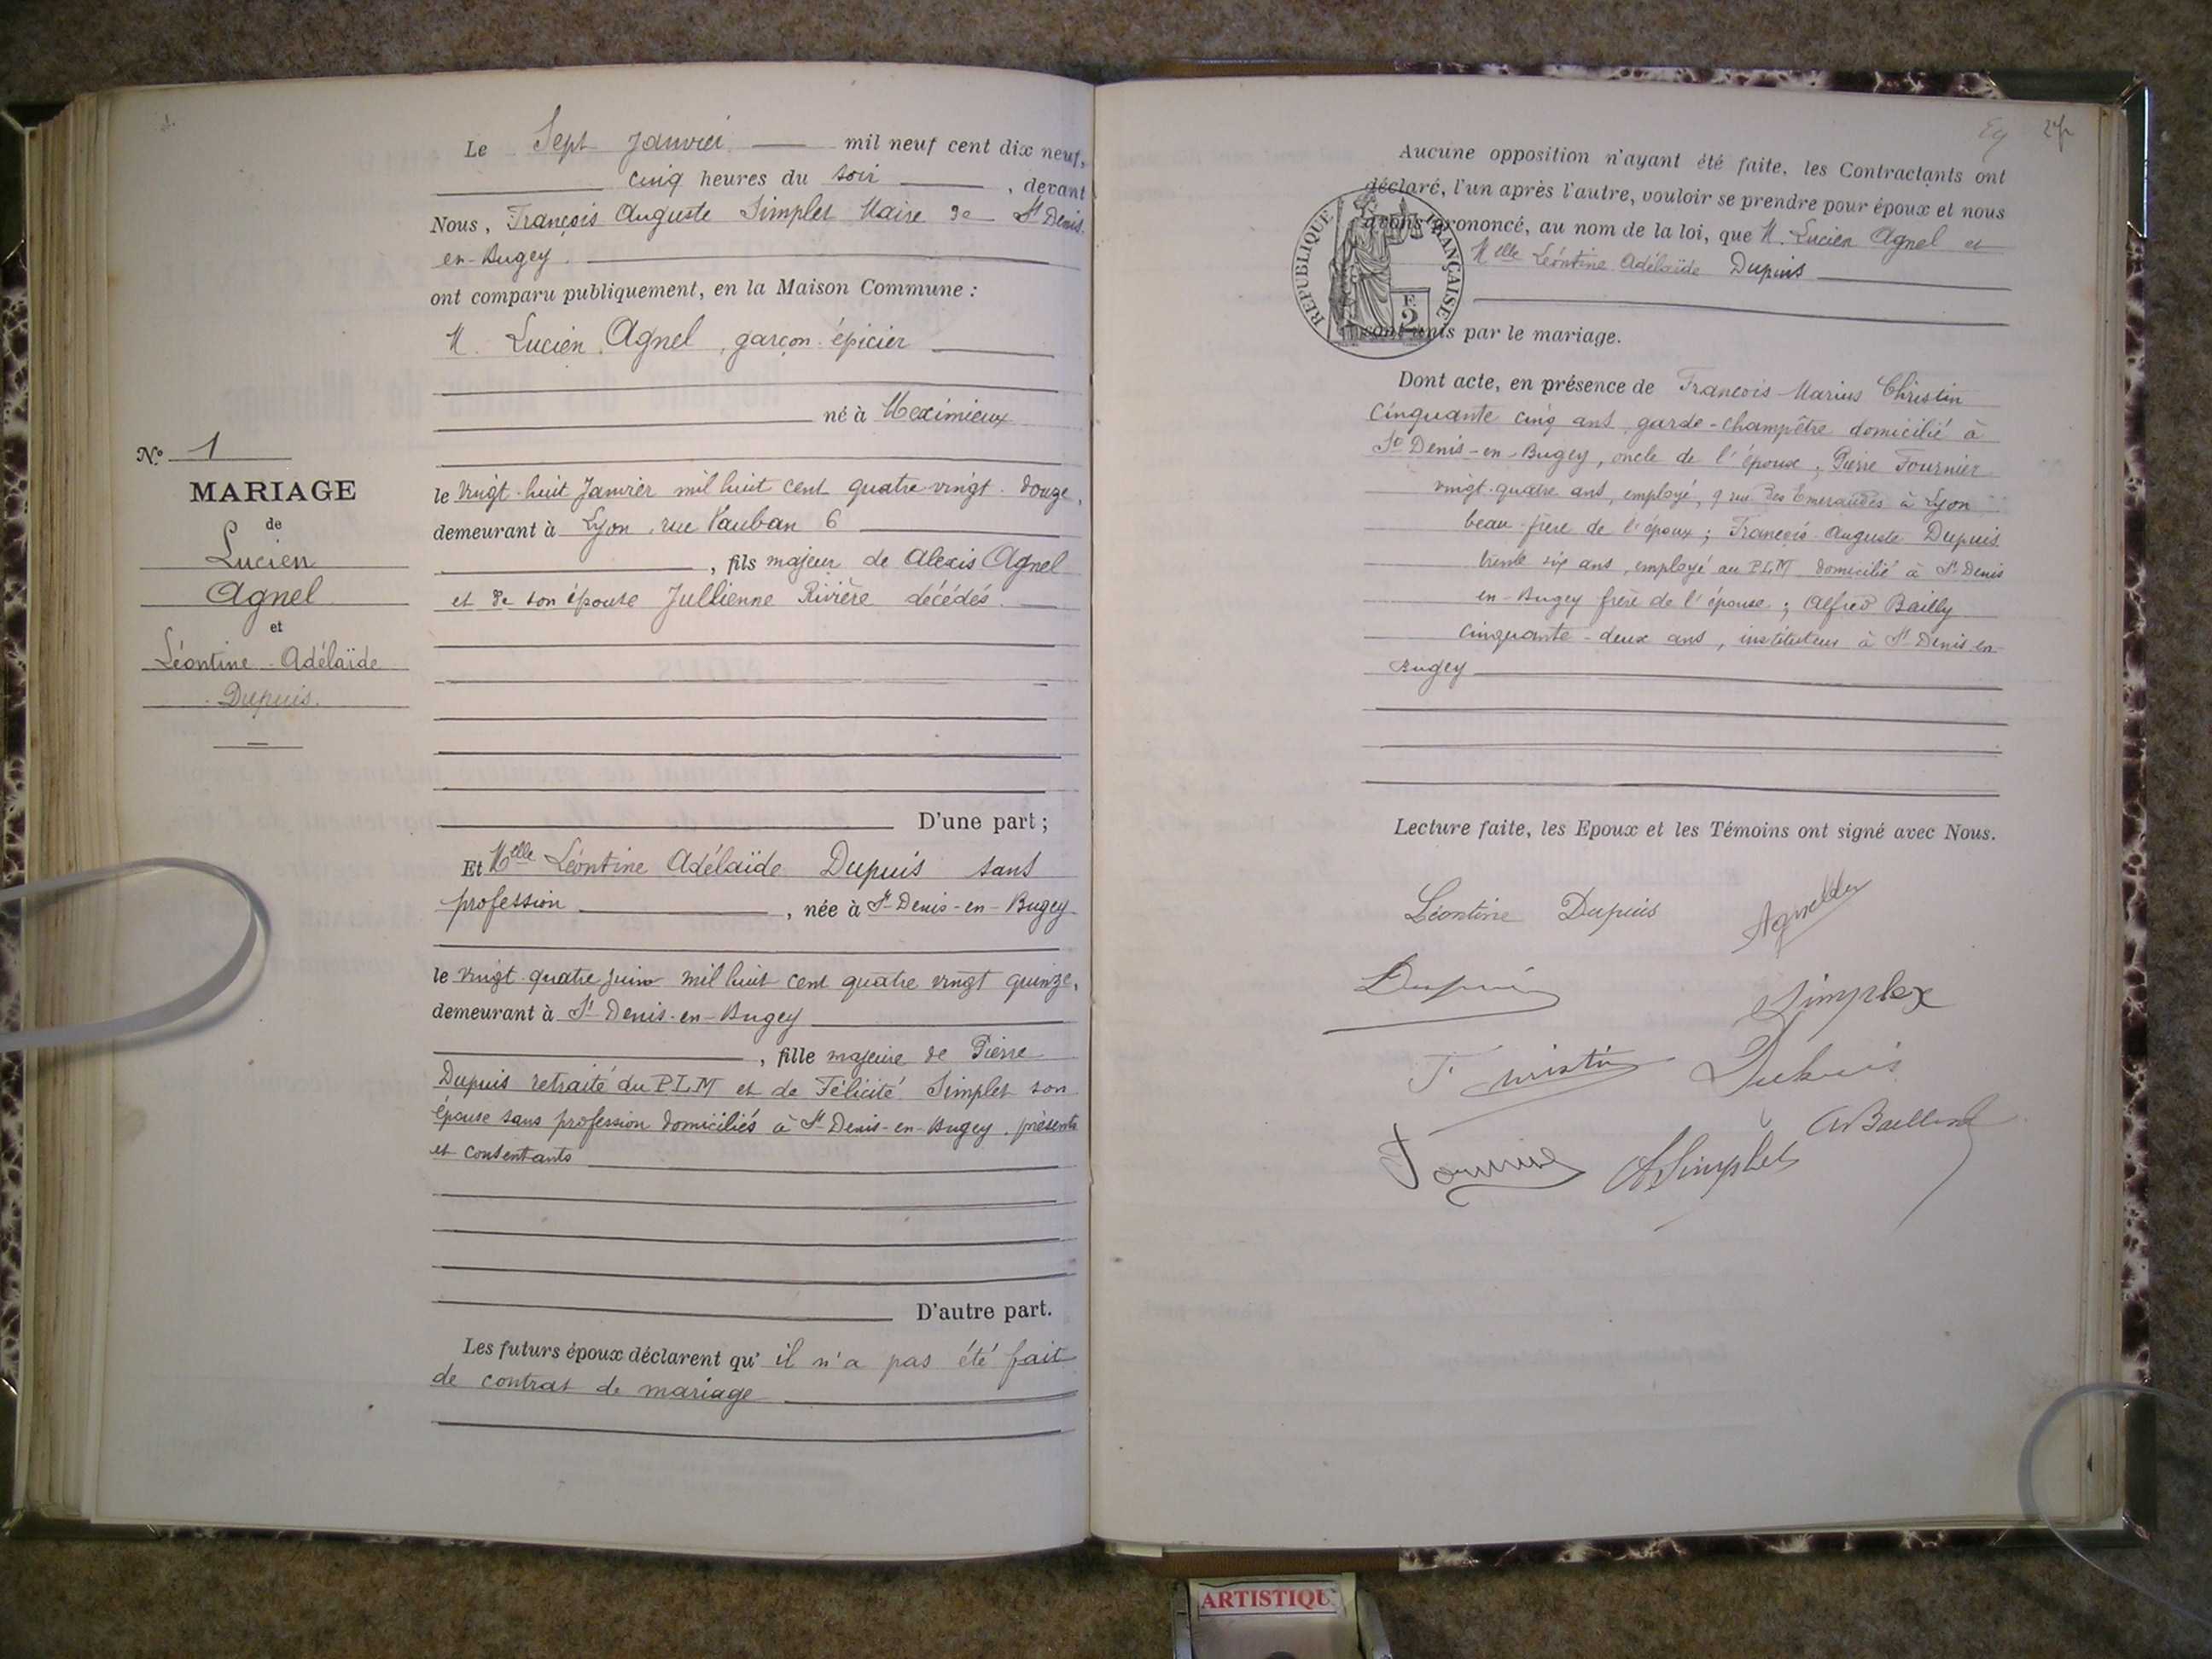 Le Sept Janvier mil neuf cent dix neuf,
cinq heures du soir, devant
Nous, François Auguste Simplet Maire de St Denis
en-Bugey.
ont comparu publiquement, en la Maison Commune :
M. Lucien Agnel, garçon épicier
né à Meximieux
le vingt-huit Janvier mil huit cent quatre-vingt-douze,
demeurant à Lyon, rue Vauban 6
, fils majeur de Alexis Agnel
et de son épouse Jullienne Rivière décédés.
D'une part ;
Et Melle Léontine Adélaïde Dupuis sans
profession, née à St Denis-en-Bugey
le vingt-quatre Juin mil huit cent quatre vingt quinze,
demeurant à St Denis-en-Bugey
, fille majeure de Pierre
Dupuis retraité du P.L.M et de Félicité Simplet son
épouse sans profession domiciliés à St Denis-en-Bugey, présents
et consentants
D'autre part.
Les futurs époux déclarent qu'il n'a pas été fait
de contrat de mariage
No 1
MARIAGE
de
Lucien
Agnel
et
Léontine-Adélaïde
Dupuis.
Aucune opposition n'ayant été faite, les Contractants ont
déclaré, l'un après l'autre, vouloir se prendre pour époux et nous
avons prononcé, au nom de la loi, que M. Lucien Agnel et
Melle Léontine Adélaïde Dupuis
sont unis par le mariage.
REPUBLIQUE FRANÇAISE
F.
2
Dont acte, en présence de François-Marius Christin
Cinquante cinq ans, garde-champêtre domicilié à
St Denis-en-Bugey, oncle de l'épouse ; Pierre Fournier
vingt-quatre ans, employé, 9 rue des Emeraudes à Lyon
beau-frère de l'époux ; François-Auguste Dupuis
trente six ans, employé au P.L.M domicilié à St Denis
en-Bugey frère de l'épouse ; Alfred Bailly
Cinquante-deux ans, instituteur à St Denis en
Bugey
Lecture faite, les Epoux et les Témoins ont signé avec Nous.
Léontine Dupuis
Dupuis
Simplex
Dubuis
A Simplet
ARTISTIQU